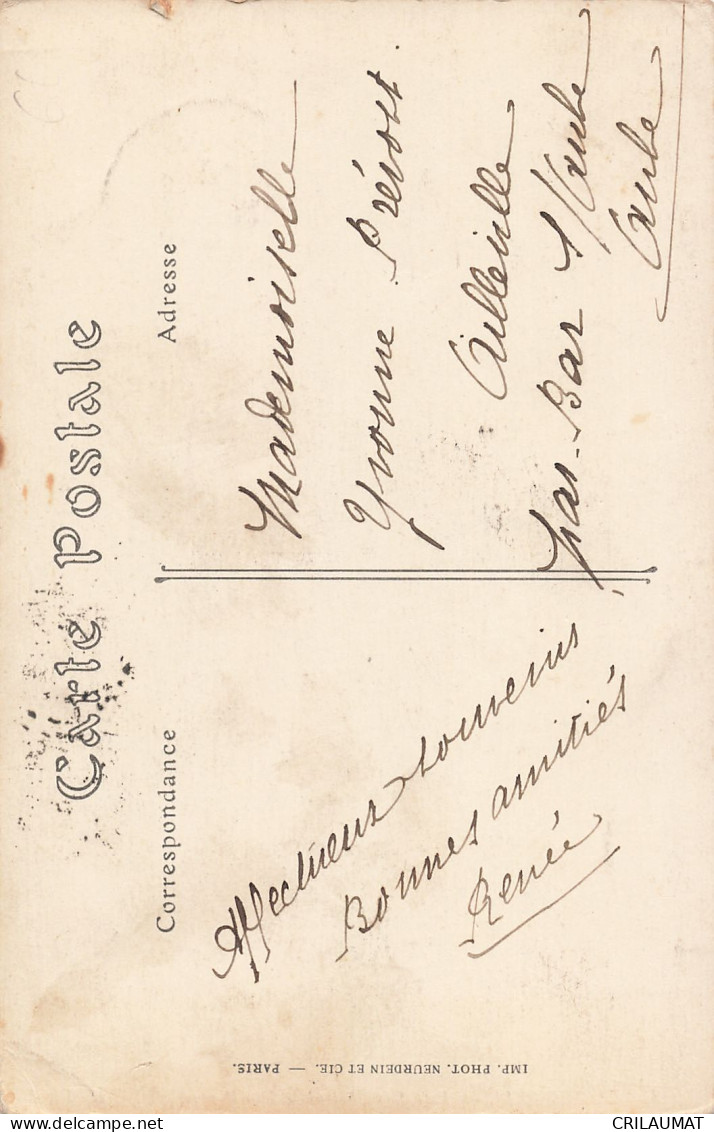 Carte Postale
Correspondance
Adresse
Affectueux souvenirs
Bonnes amitiés
Renée
Mademoiselle
Yvonne Prévost
Ailleville
par Bar s/Aube
Aube
IMP. PHOT. NEURDEIN ET CIE. — PARIS.
CRILAUMAT